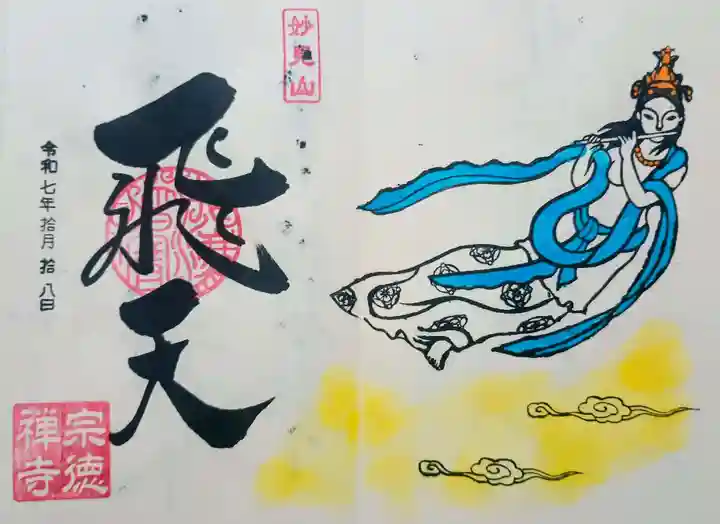 妙見山
飛天
令和七年拾月拾八日
宗徳
禅寺